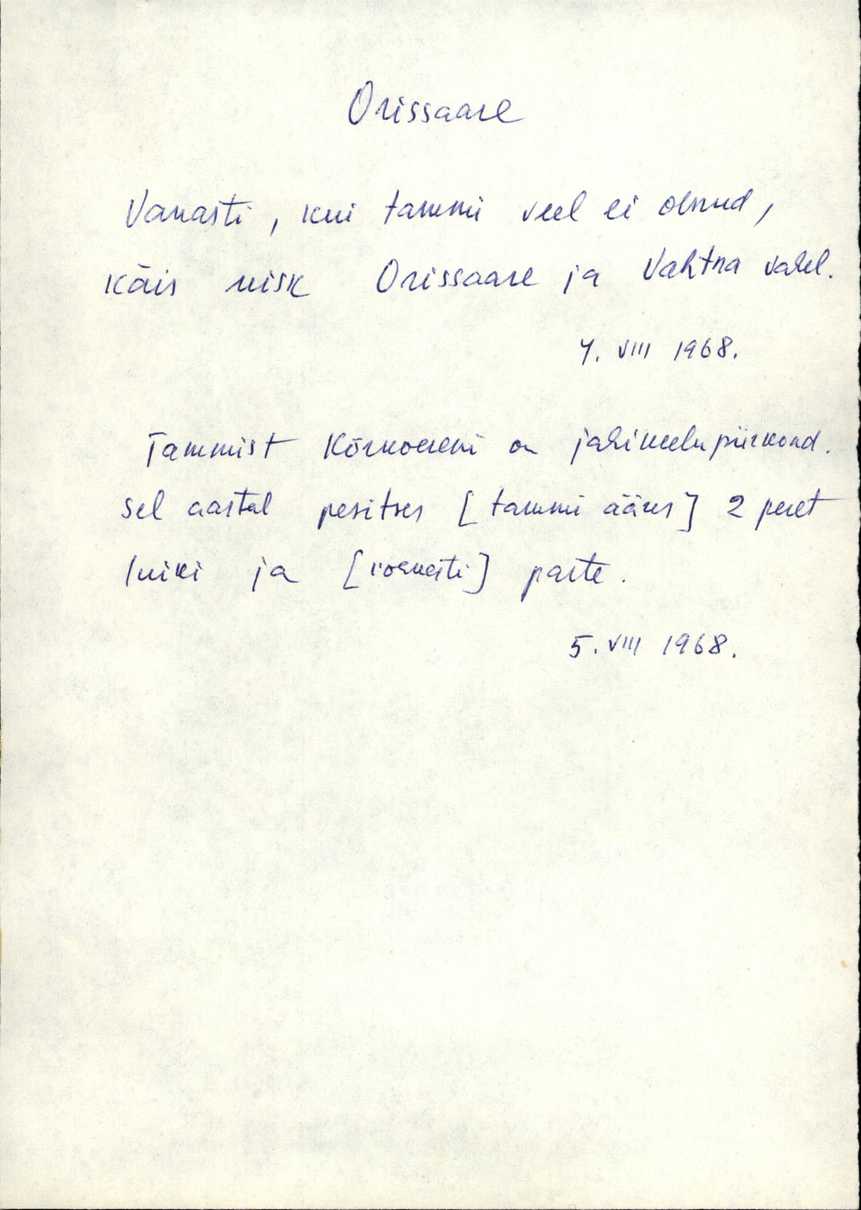 Orissaare
Vanasti, kui tammi veel ei olnud,
käis risk Orissaare ja Vahtna vahel.
4. VIII 1968.
Tammist Kõrkvereni on jahikeelupiirkond.
Sel aastal pesitses [tammi ääres] 2 peret
luiki ja [rohkesti] parte.
5. VIII 1968.